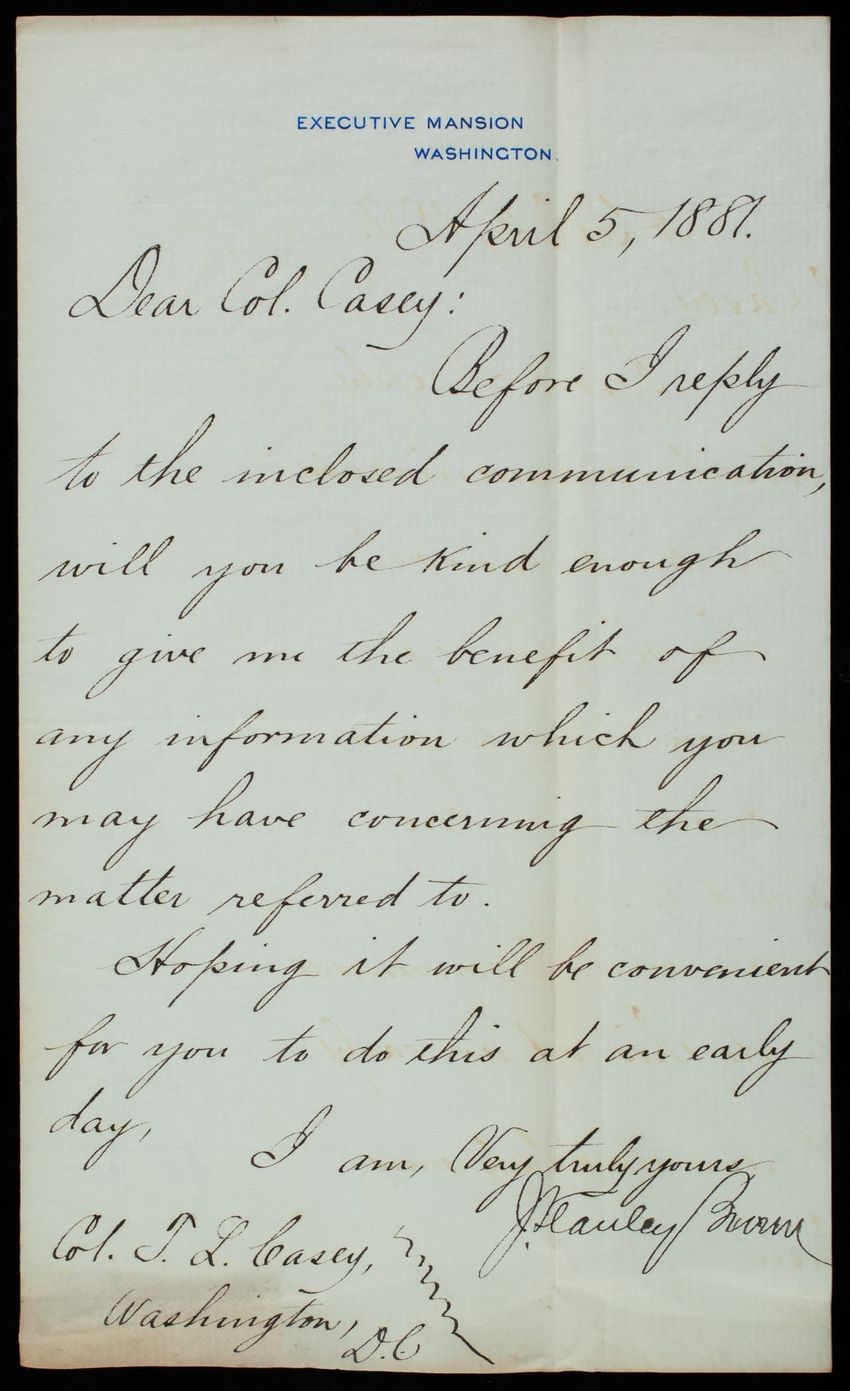 EXECUTIVE MANSION
WASHINGTON.
April 5, 1881.
Dear Col. Casey:
Before I reply
to the inclosed communication,
will you be kind enough
to give me the benefit of
any information which you
may have concerning the
matter referred to.
Hoping it will be convenient
for you to do this at an early
day,
I am, Very truly yours
J. Stanley Brown
Col. T. L. Casey,
Washington,
D.C